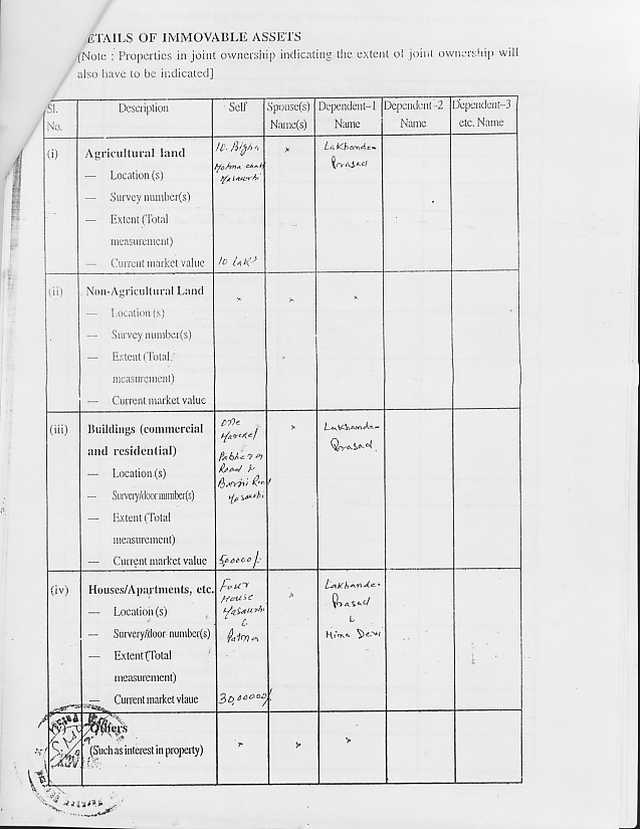 ETAILS OF IMMOVABLE ASSETS
[Note : Properties in joint ownership indicating the extent of joint ownership will
also have to be indicated]
Sl. No. Description Self Spouse(s) Name(s) Dependent-1 Name Dependent -2 Name Dependent-3 etc. Name
(i) Agricultural land 10. Bigha × Lakhande- Prasad
— Location (s)
— Survey number(s)
— Extent (Total
measurement)
— Current market value 10 Lak
(ii) Non-Agricultural Land × × ×
— Location (s)
— Survey number(s)
— Extent (Total
measurement)
— Current market value
(iii) Buildings (commercial One × Lakhande-
and residential) Prasad
— Location (s) Road &
— Survery/door number(s) Road
— Extent (Total
measurement)
— Current market value 500000/-
(iv) Houses/Apartments, etc. Four House × Lakhande-
— Location (s) Masaurhi Prasad
— Survery/door number(s) & Patna & Mina Devi
— Extent (Total
measurement)
— Current market vlaue 30,00000/-
Others
(Such as interest in property) × × ×